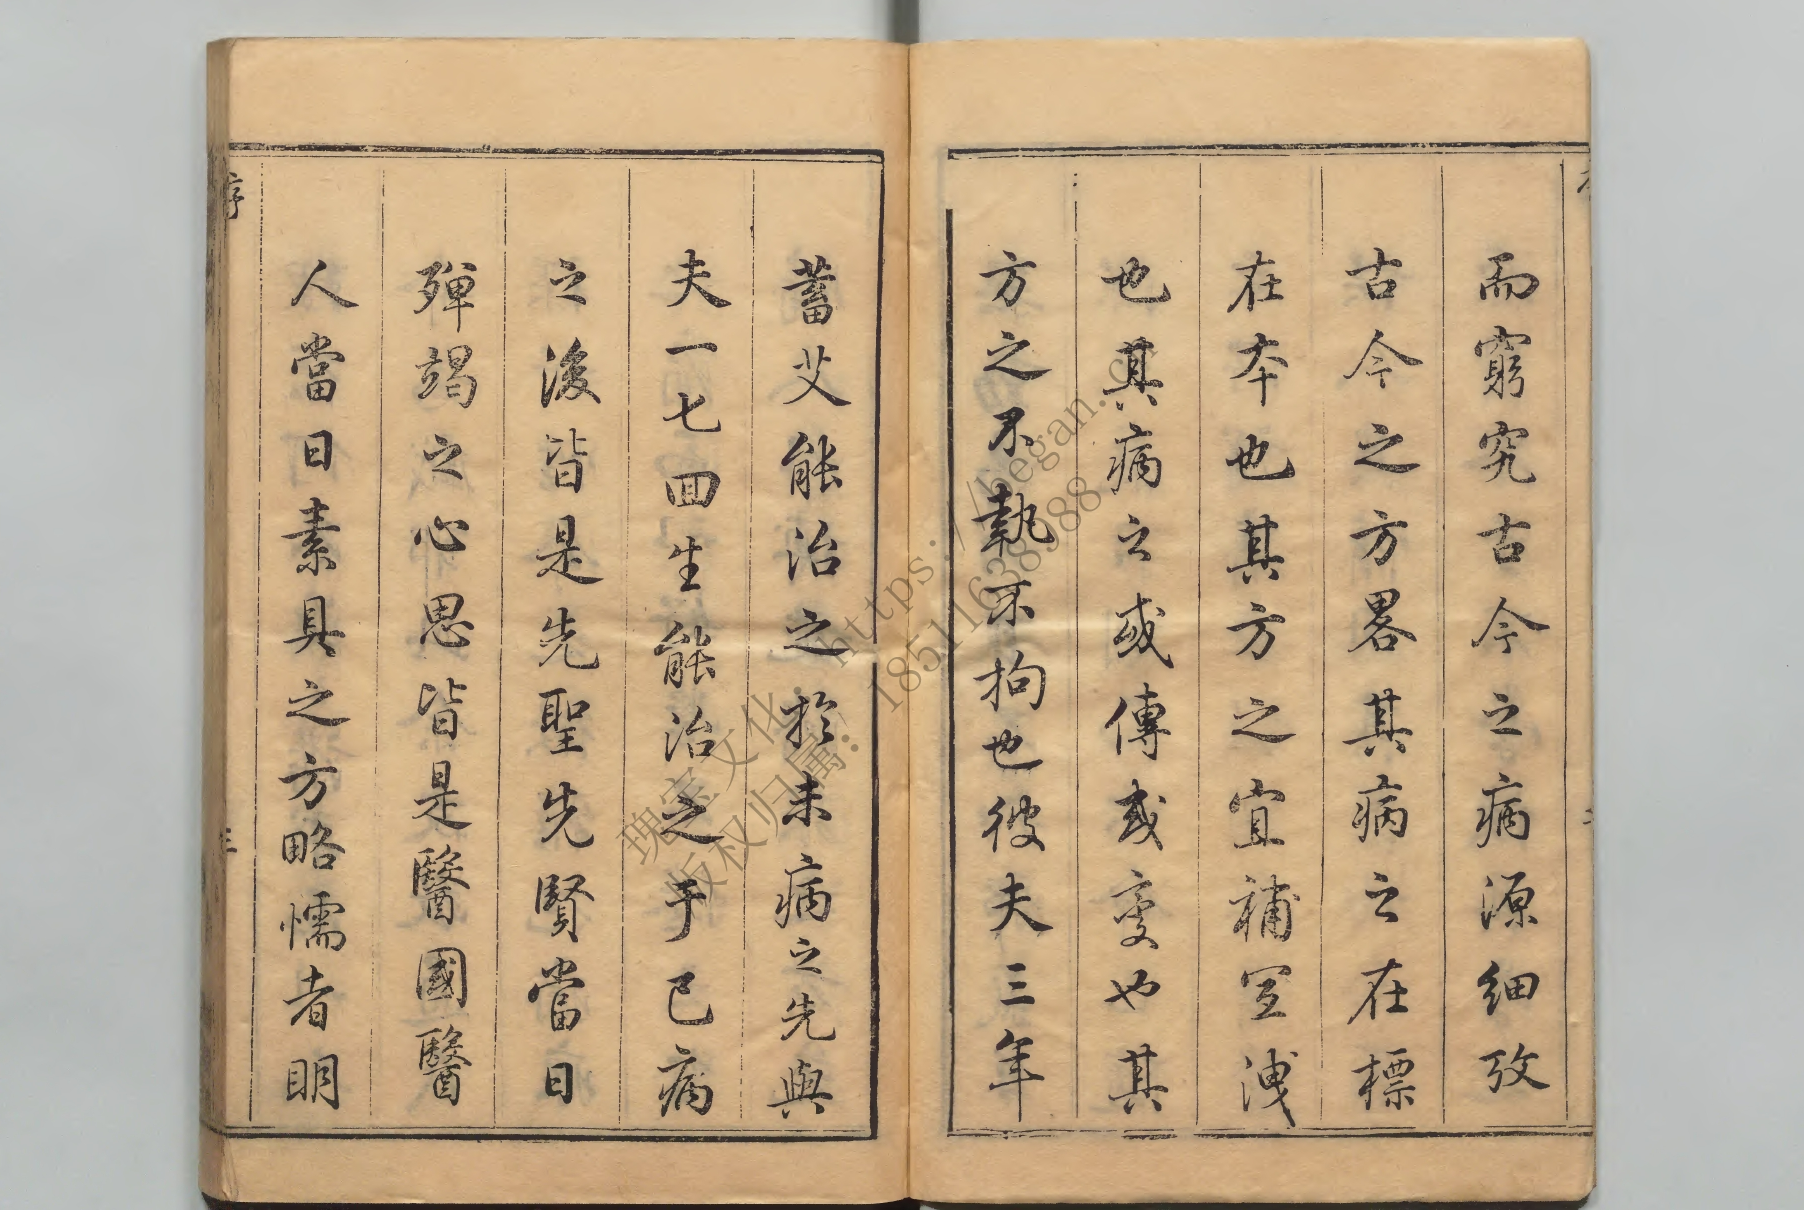 而窮究古今之病源細攷
古今之方畧其病之在標
在本也其方之宜補宜洩
也其病之或傳或變也其
方之不執不拘也彼夫三年
蓄艾能治之於未病之先與
夫一七回生能治之于已病
之後皆是先聖先賢當日
殫竭之心思皆是醫國醫
人當日素具之方略懦者明
序
三
瑰宝文化: https://began.cc
版权归属: 18511638988